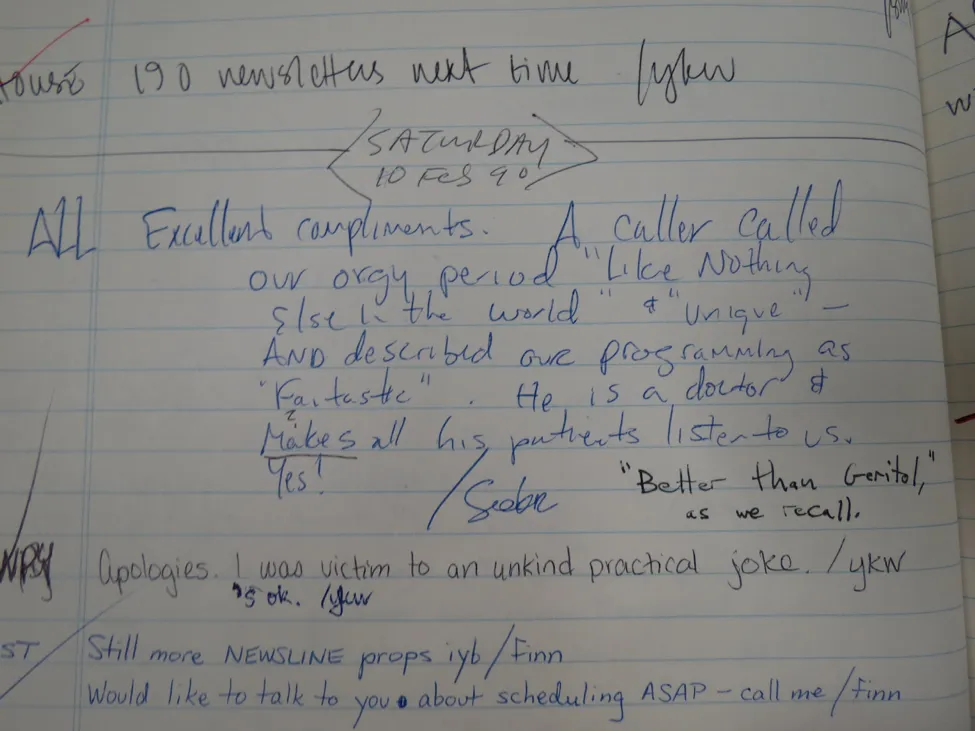 190 newsletters next time /ykw
SATURDAY
10 FEB 90
ALL Excellent compliments. A caller called
our orgy period "Like Nothing
Else in the world" & "Unique" —
AND described our programming as
"Fantastic". He is a doctor &
Makes all his patients listen to us.
Yes!
"Better than Geritol,"
as we recall.
Apologies. I was victim to an unkind practical joke. /ykw
's ok. /ykw
ST Still more NEWSLINE props iyb /Finn
Would like to talk to you about scheduling ASAP – call me /Finn